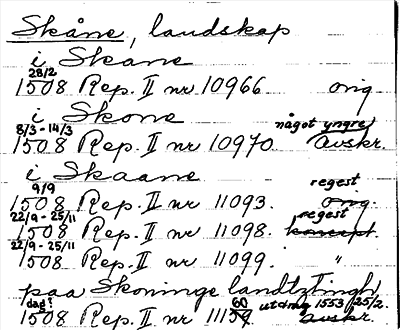 Skåne, landskap
i Skane
28/2
1508 Rep. II nr 10966. orig.
i Skone
8/3 - 14/3 något yngre
1508 Rep. II nr 10970. avskr.
i Skaane
9/9 regest
1508 Rep. II nr 11093. orig.
22/9 - 25/11 regest
1508 Rep. II nr 11098. koncept.
22/9 - 25/11
1508 Rep. II nr 11099. "
paa Skoninge landtztingh
dag? 60 utdrag 1553 25/2
1508 Rep. II nr 11159. avskr.